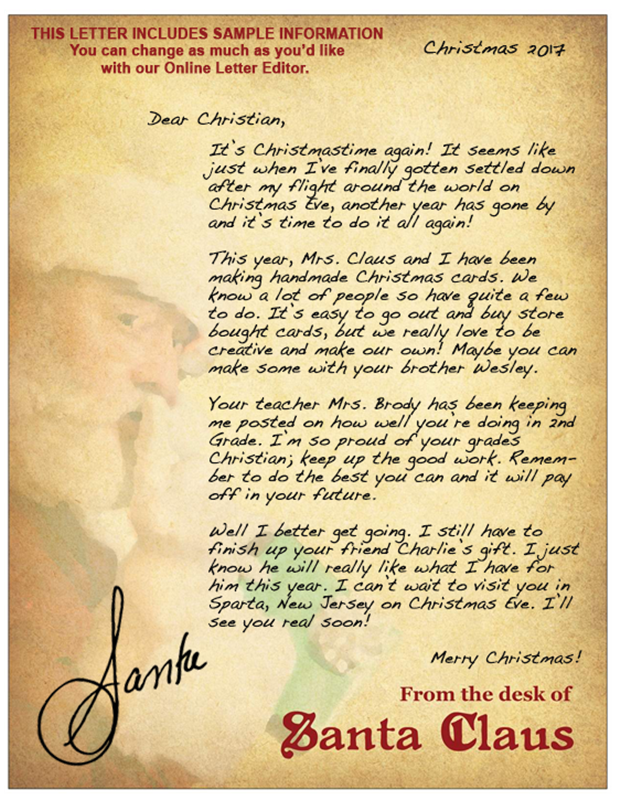 THIS LETTER INCLUDES SAMPLE INFORMATION
You can change as much as you'd like
with our Online Letter Editor.
Christmas 2017
Dear Christian,
It's Christmastime again! It seems like
just when I've finally gotten settled down
after my flight around the world on
Christmas Eve, another year has gone by
and it's time to do it all again!
This year, Mrs. Claus and I have been
making handmade Christmas cards. We
know a lot of people so have quite a few
to do. It's easy to go out and buy store
bought cards, but we really love to be
creative and make our own! Maybe you can
make some with your brother Wesley.
Your teacher Mrs. Brody has been keeping
me posted on how well you're doing in 2nd
Grade. I'm so proud of your grades
Christian; keep up the good work. Remem-
ber to do the best you can and it will pay
off in your future.
Well I better get going. I still have to
finish up your friend Charlie's gift. I just
know he will really like what I have for
him this year. I can't wait to visit you in
Sparta, New Jersey on Christmas Eve. I'll
see you real soon!
Merry Christmas!
Santa
From the desk of
Santa Claus